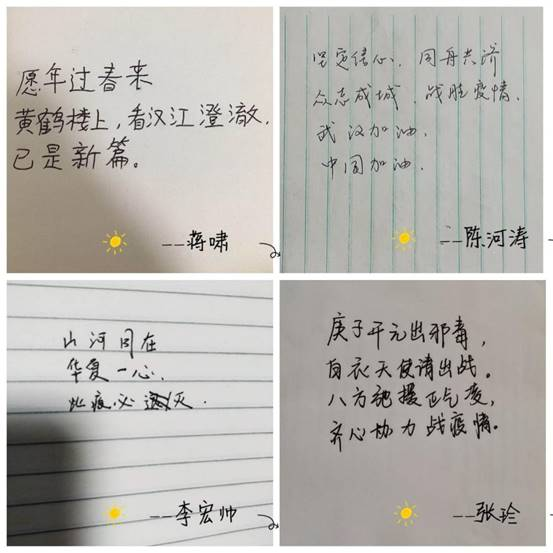 愿年过春来
黄鹤楼上,看汉江澄澈,
已是新篇。
--蒋啸
坚定信心、同舟共济
众志成城、战胜疫情.
武汉加油.
中国加油.
--陈河涛
山河同在
华夏一心.
疫必灭.
--李宏帅
庚子开元出邪毒,
白衣天使请出战。
八方驰援正气凌,
齐心协力战疫情。
--张珍